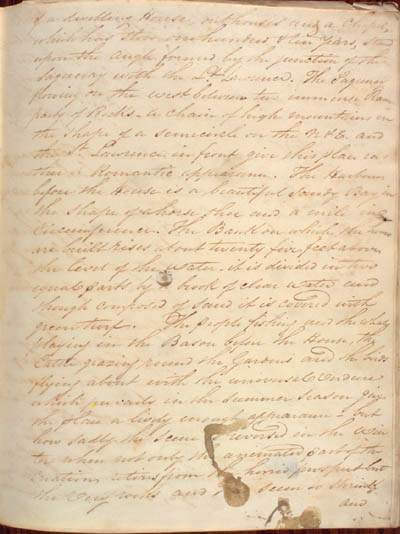 of a dwelling House, outhouses and a Chapel,
which has stood one hundred & ten Years, stand
upon the angle formed by the junction of the
Saguenay with the St Lawrence. The Saguenay
flowing on the west between two immense Ram
parts of Rocks. a chain of high mountains in
the shape of a semicircle on the N & E. and
the St. Lawrence in front give this place ra
ther a Romantic appearance. The Harbour
before the House is a beautiful Sandy Bay in
the shape of a horse shoe and a mile in
Circumference. The Bank on which the houses
are built rises about twenty five feet above
the level of the water. it is divided in two
equal parts by a brook of clear water and
though composed of sand it is covered with
green turf. The people fishing and the whales
playing in the Bason before the House, the
Cattle grazing round the Gardens and the birds
flying about with the universal Verdure
which prevails in the Summer Season give
the place a lively enough appearance - but
how sadly the scene is reversed in the Win
ter when not only the animated part of the
Creation retires from the horrid prospect but
the very rocks and seem to shrink
and